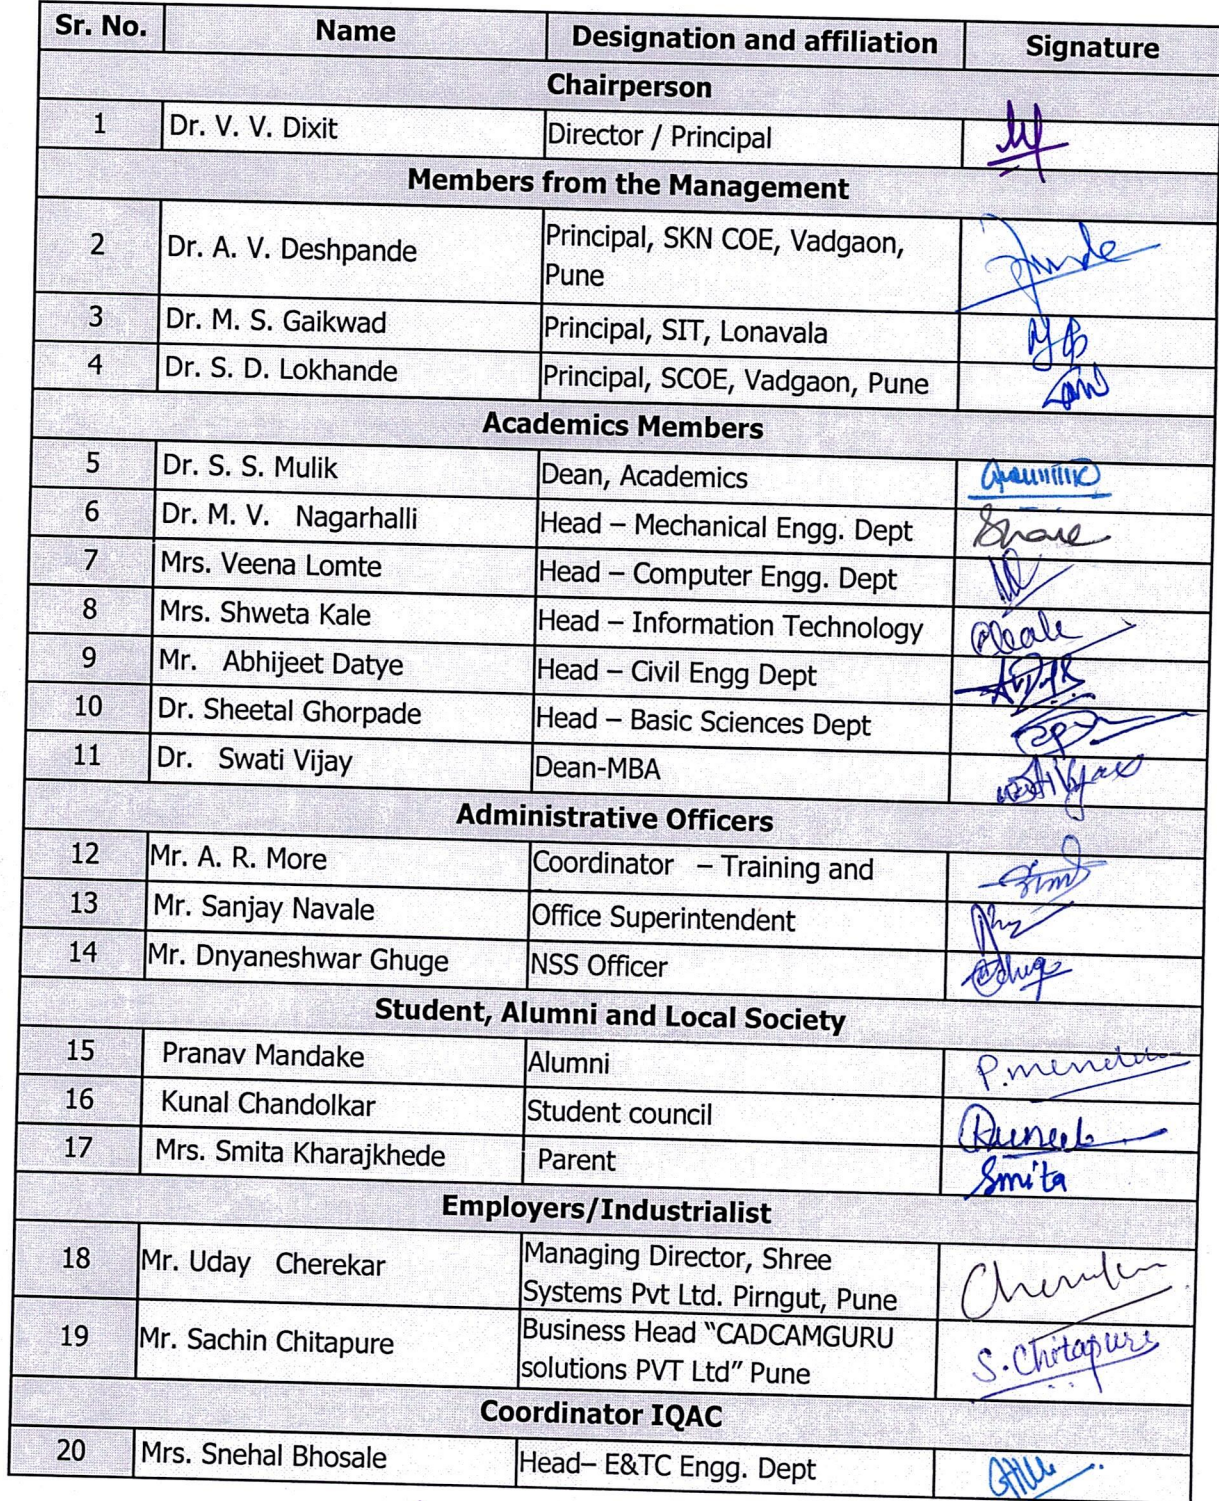 Sr. No. Name Designation and affiliation Signature
Chairperson
1 Dr. V. V. Dixit Director / Principal
Members from the Management
2 Dr. A. V. Deshpande Principal, SKN COE, Vadgaon,
Pune
3 Dr. M. S. Gaikwad Principal, SIT, Lonavala
4 Dr. S. D. Lokhande Principal, SCOE, Vadgaon, Pune
Academics Members
5 Dr. S. S. Mulik Dean, Academics
6 Dr. M. V. Nagarhalli Head – Mechanical Engg. Dept
7 Mrs. Veena Lomte Head – Computer Engg. Dept
8 Mrs. Shweta Kale Head – Information Technology
9 Mr. Abhijeet Datye Head – Civil Engg Dept
10 Dr. Sheetal Ghorpade Head – Basic Sciences Dept
11 Dr. Swati Vijay Dean-MBA
Administrative Officers
12 Mr. A. R. More Coordinator – Training and
13 Mr. Sanjay Navale Office Superintendent
14 Mr. Dnyaneshwar Ghuge NSS Officer
Student, Alumni and Local Society
15 Pranav Mandake Alumni
16 Kunal Chandolkar Student council
17 Mrs. Smita Kharajkhede Parent Smita
Employers/Industrialist
18 Mr. Uday Cherekar Managing Director, Shree
Systems Pvt Ltd. Pirngut, Pune
19 Mr. Sachin Chitapure Business Head “CADCAMGURU
solutions PVT Ltd” Pune S. Chitapure
Coordinator IQAC
20 Mrs. Snehal Bhosale Head– E&TC Engg. Dept